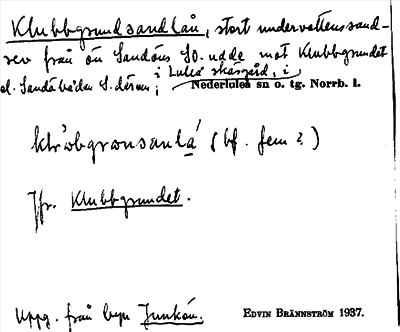 Klubbgrundsandlån, stort undervattenssand-
rev från ön Sandöns SO. udde mot Klubbgrundet
el. Sandöbådan S. därom; i Luleå skärgård, i
Nederluleå sn o. tg. Norrb. l.
(bf. fem?)
Jfr. Klubbgrundet.
Uppg. från byn Junkön. EDVIN BRÄNNSTRÖM 1937.